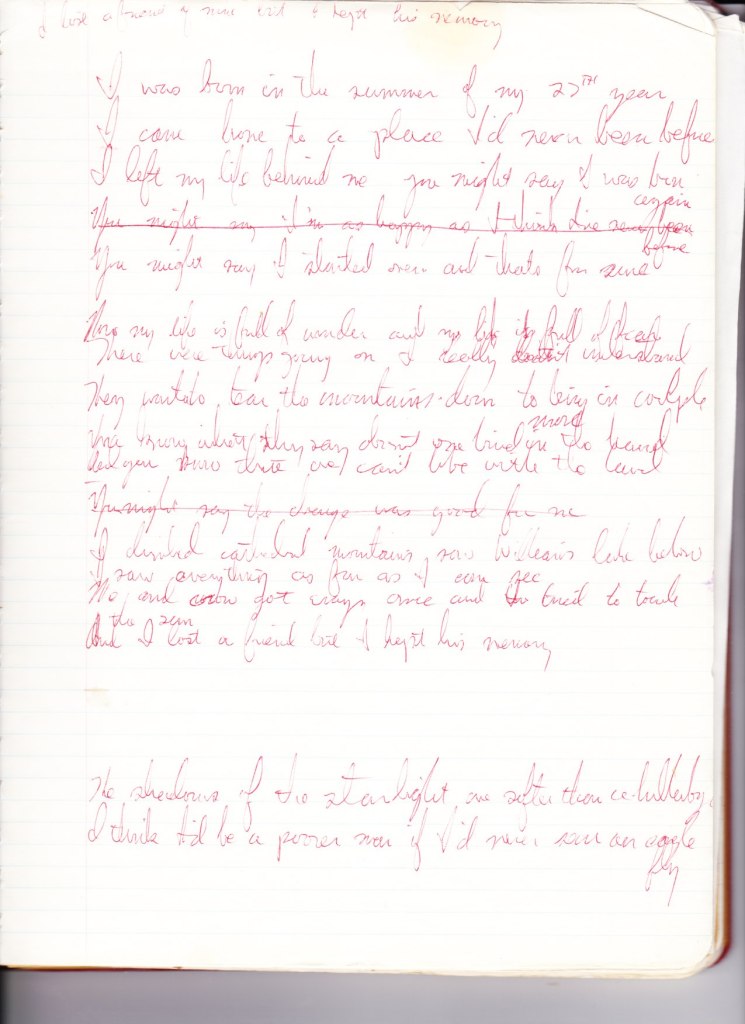 I lost a friend of mine but I kept his memory
I was born in the summer of my 27TH year
I come home to a place I'd never been before
I left my life behind me you might say I was born
again
You might say I'm as happy as I think I've ever been
before
You might say I started over and thats for sure
Now my life is full of wonder and my life is full of
There were things going on I really don't understand
They want to tear the mountains down to bring in couple
more
say doesn't one kind the
you can't live with the land
You might say the change was good for me
I climbed cathedral mountains, saw Williams lake below
I saw everything as far as I can see
Me and got crazy once and tried to touch
the sun
And I lost a friend but I kept his memory
The shadows of the starlight are softer than a lullaby
I think I'd be a poorer man if I'd never seen an eagle
fly